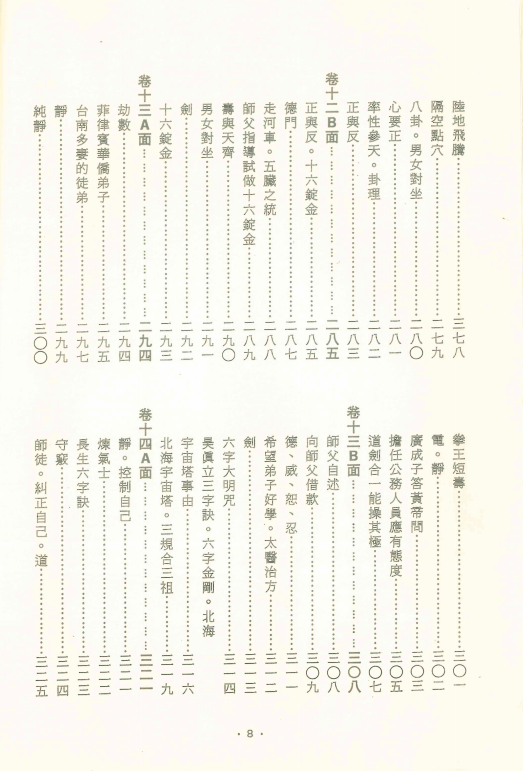 陸地飛騰⋯⋯三七八
隔空點穴⋯⋯二七九
八卦。男女對坐⋯⋯二八〇
心要正⋯⋯二八一
率性參天。卦理⋯⋯二八二
正與反⋯⋯二八三
卷十二B面⋯⋯二八五
正與反。十六錠金⋯⋯二八五
德門⋯⋯二八七
走河車。五臟之統⋯⋯二八八
師父指導試做十六錠金⋯⋯二八九
壽與天齊⋯⋯二九〇
男女對坐⋯⋯二九一
劍⋯⋯二九二
十六錠金⋯⋯二九三
卷十三A面⋯⋯二九四
劫數⋯⋯二九四
菲律賓華僑弟子⋯⋯二九五
台南多妻的徒弟⋯⋯二九七
靜⋯⋯二九九
純靜⋯⋯三〇〇
拳王短壽⋯⋯三〇一
電。靜⋯⋯三〇二
廣成子答黃帝問⋯⋯三〇三
擔任公務人員應有態度⋯⋯三〇五
道劍合一能操其極⋯⋯三〇七
卷十三B面⋯⋯三〇八
師父自述⋯⋯三〇八
向師父借款⋯⋯三〇九
德、威、恕、忍⋯⋯三一一
希望弟子好學。太醫治方⋯⋯三一二
劍⋯⋯三一三
六字大明咒⋯⋯三一四
昊眞立三字訣。六字金剛。北海
宇宙塔事由⋯⋯三一六
北海宇宙塔。三規合三祖⋯⋯三一九
卷十四A面⋯⋯三二一
靜。控制自己⋯⋯三二一
煉氣士⋯⋯三二二
長生六字訣⋯⋯三二三
守竅⋯⋯三二四
師徒。糾正自己。道⋯⋯三二五
· 8 ·